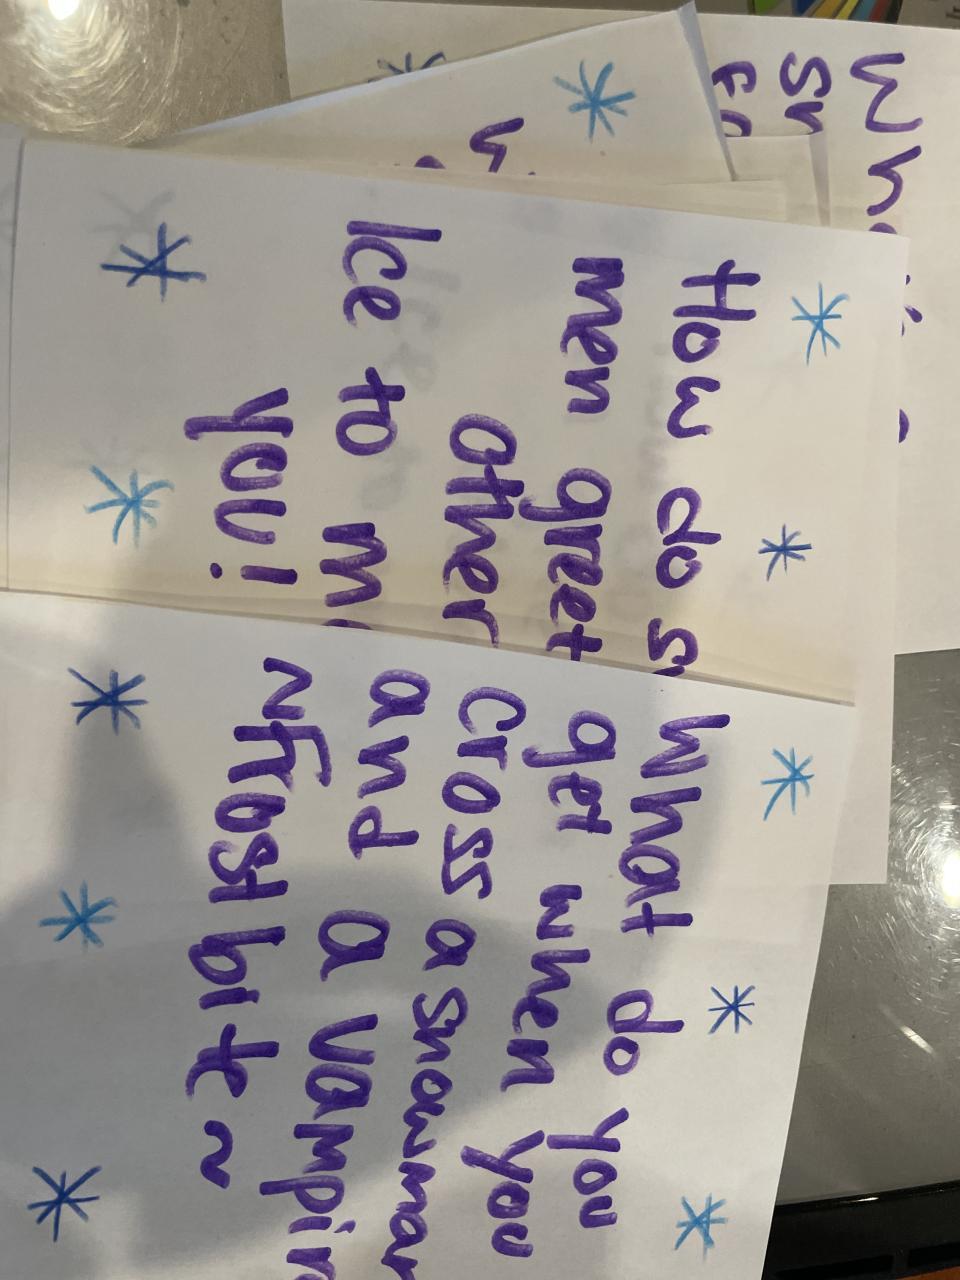 How do
men greet
other
Ice to
you!
What do you
get when you
cross a snowman
and a vampire
~ frostbite ~